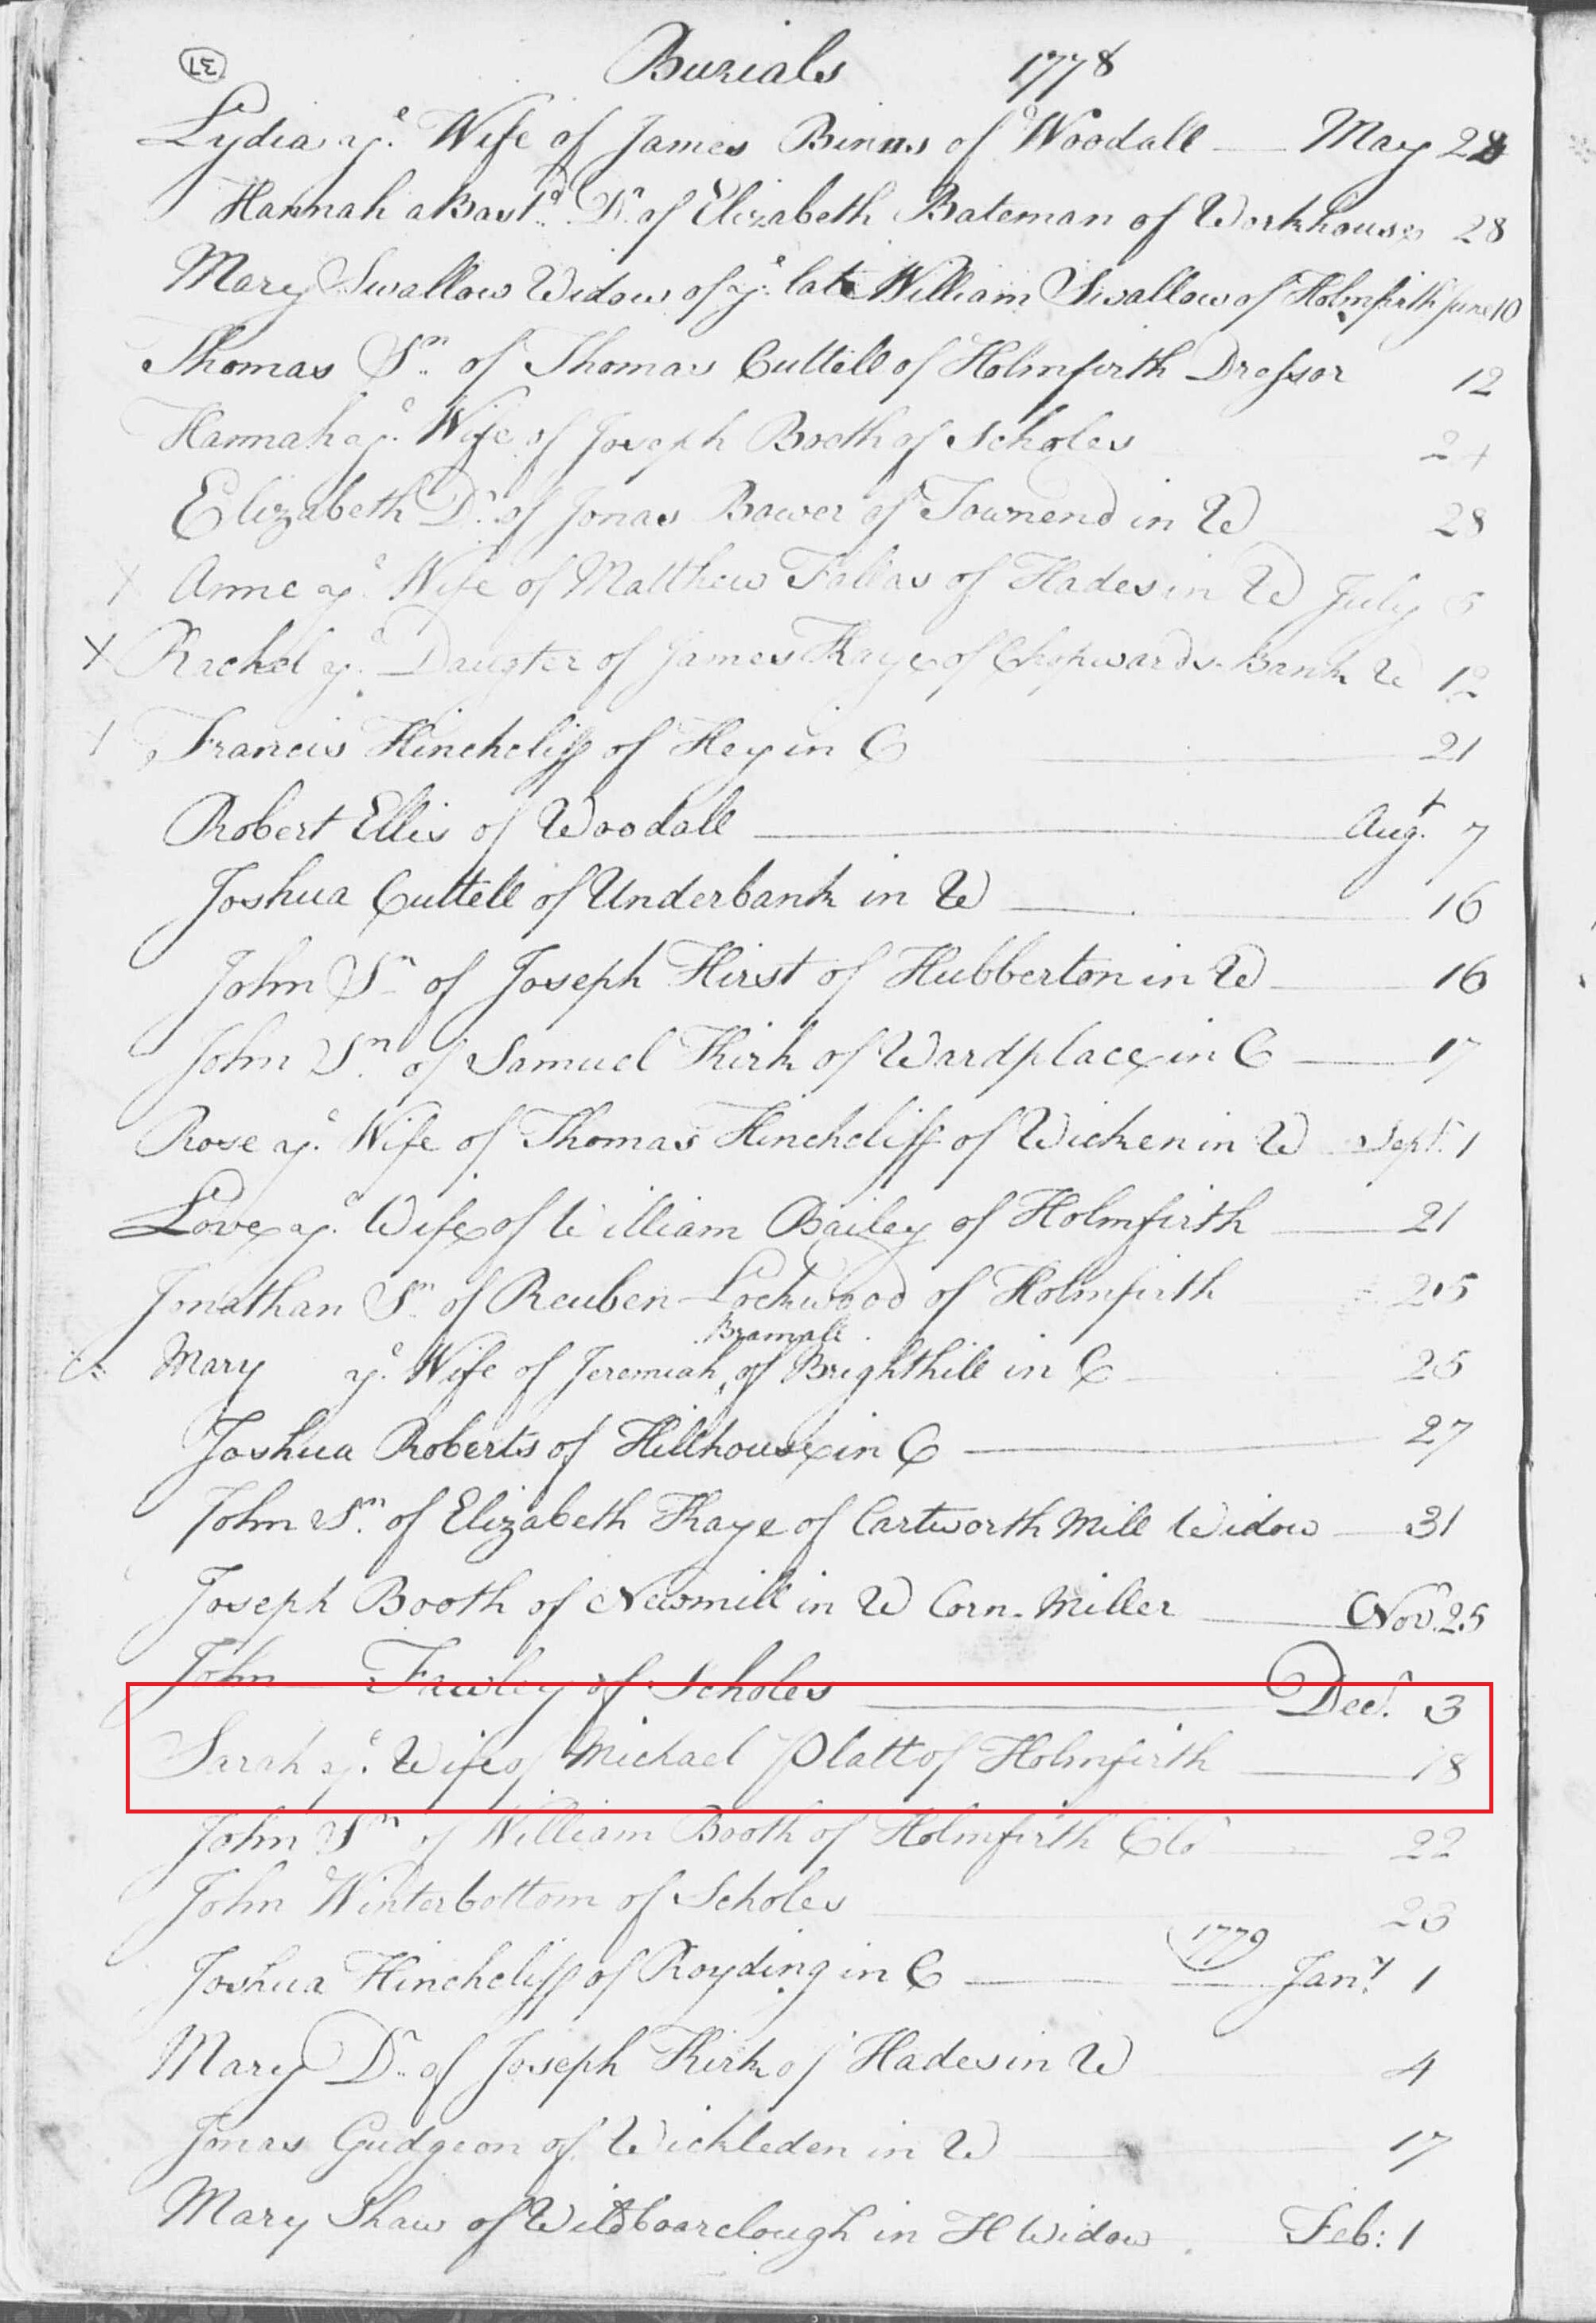 37
Burials 1778
Lydia yᵉ Wife of James Binns of Woodall May 28
Hannah a Bastᵈ Dʳ of Elizabeth Bateman of Workhouse 28
Mary Swallow Widow of yᵉ late William Swallow of Holmfirth June 10
Thomas Sⁿ of Thomas Cuttell of Holmfirth Dresser 12
Hannah yᵉ Wife of Joseph Booth of Scholes 24
Elizabeth Dʳ of Jonas Bower of Townend in W 28
X Anne yᵉ Wife of Matthew Fallas of Hades in W July 5
X Rachel yᵉ Daugter of James Kaye of Bank W 12
X Francis Hinchcliff of Hey in C 21
Robert Ellis of Woodall Augᵗ 7
Joshua Cuttell of Underbank in W 16
John Sⁿ of Joseph Hirst of Hubberton in W 16
John Sⁿ of Samuel Kirk of Wardplace in C 17
Rose yᵉ Wife of Thomas Hinchcliff of Wicken in W Septʳ 1
Love yᵉ Wife of William Bailey of Holmfirth 21
Jonathan Sⁿ of Reuben Lockwood of Holmfirth 25
Bramall
Mary yᵉ Wife of Jeremiah ‸ of Brighthill in C 25
Joshua Roberts of Hillhouse in C 27
John Sⁿ of Elizabeth Kaye of Cartworth Mill Widow 31
Joseph Booth of Newmill in W Corn-Miller Novʳ 25
John Fawley of Scholes Decʳ 3
Sarah yᵉ Wife of Michael Platt of Holmfirth 18
John Sⁿ of William Booth of Holmfirth 22
John Winterbottom of Scholes 23
1779
Joshua Hinchcliff of Royding in C Janʸ 1
Mary Dʳ of Joseph Kirk of Hades in W 4
Jonas Gudgeon of Wickleden in W 17
Mary Shaw of Wildboarclough in H Widow Feb: 1